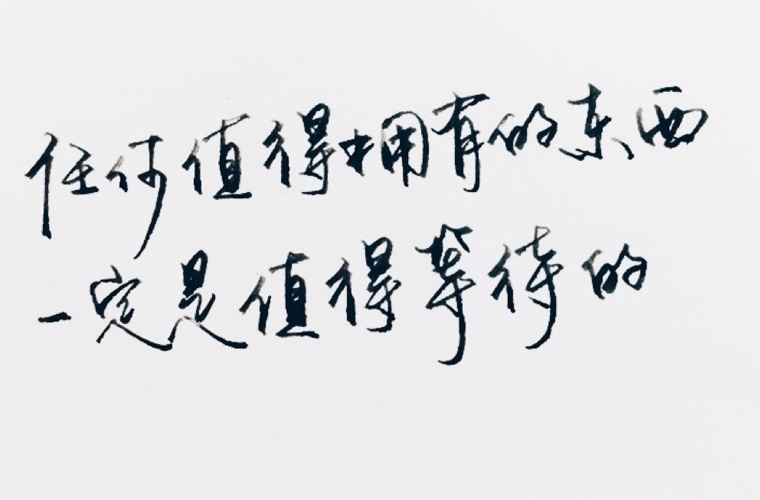 任何值得拥有的东西
一定是值得等待的